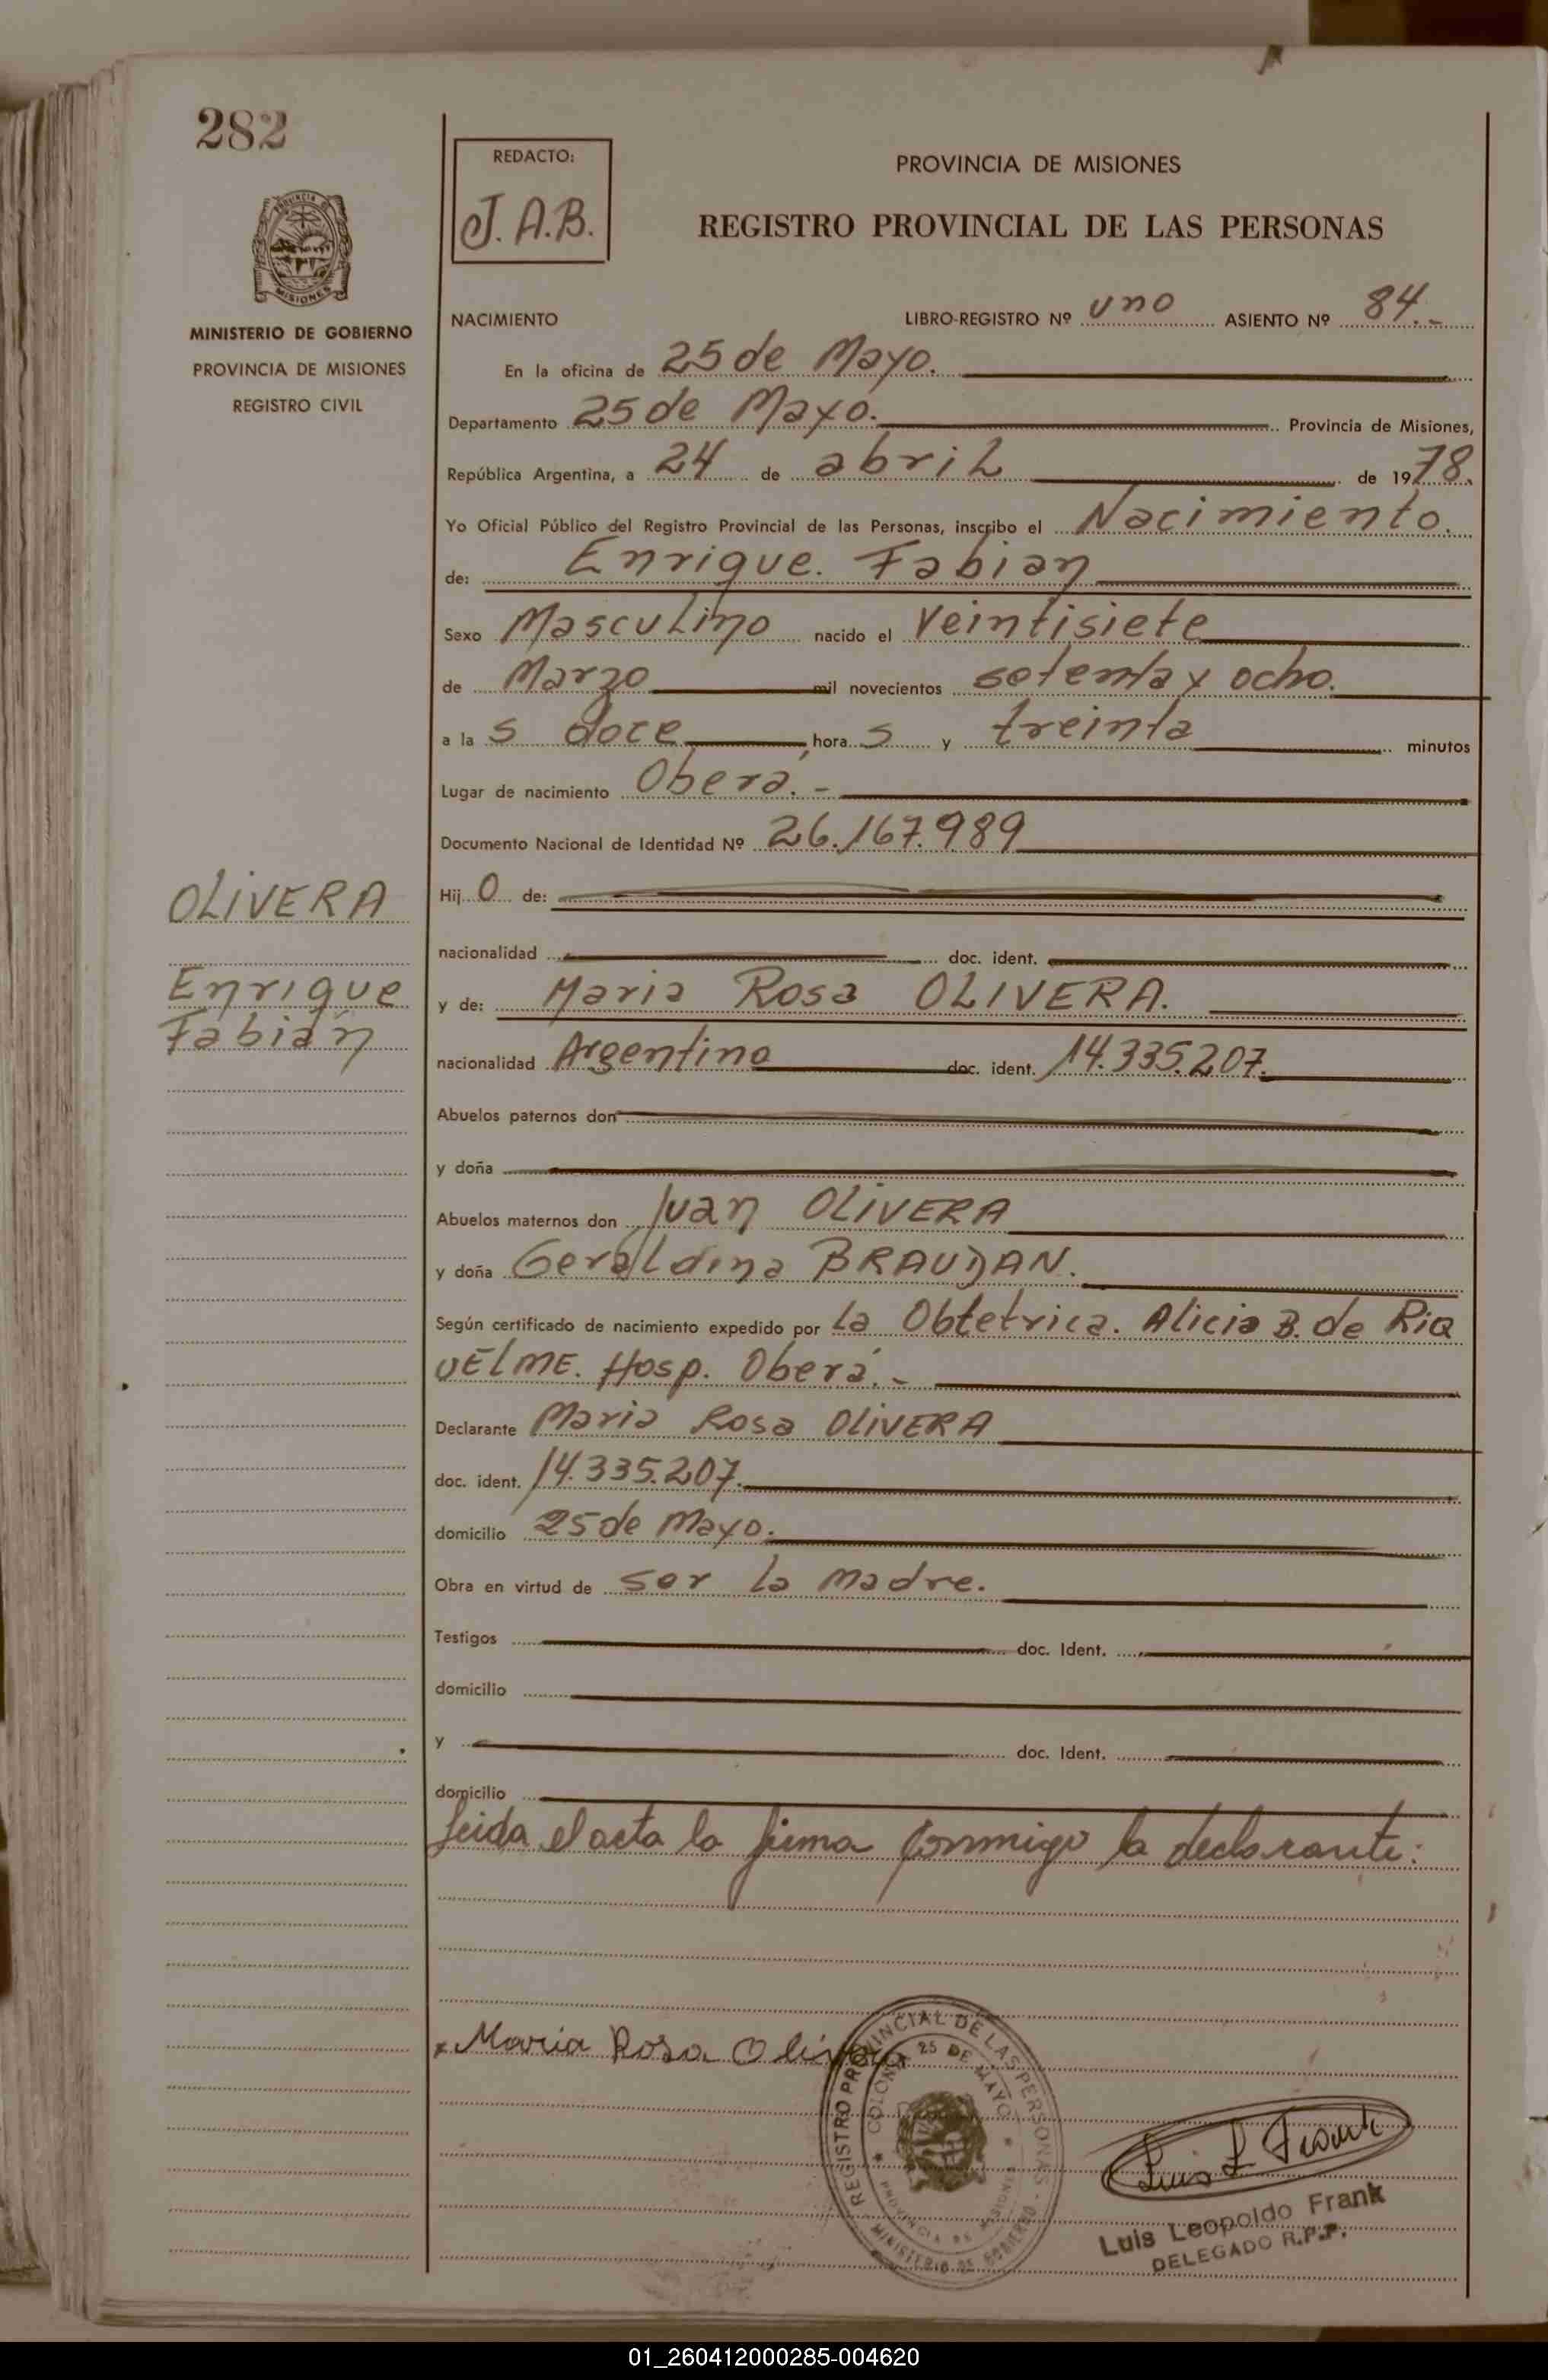 282
PROVINCIA DE MISIONES
MINISTERIO DE GOBIERNO
PROVINCIA DE MISIONES
REGISTRO CIVIL
OLIVERA
Enrique
Fabián
REDACTO:
J.A.B.
PROVINCIA DE MISIONES
REGISTRO PROVINCIAL DE LAS PERSONAS
NACIMIENTO LIBRO-REGISTRO Nº uno ASIENTO Nº 84.-
En la oficina de 25 de Mayo.
Departamento 25 de Mayo. Provincia de Misiones,
República Argentina, a 24 de abril de 1978.
Yo Oficial Público del Registro Provincial de las Personas, inscribo el Nacimiento.
de: Enrique. Fabian
Sexo Masculino nacido el Veintisiete
de Marzo mil novecientos setenta y ocho.
a la s doce hora s y treinta minutos
Lugar de nacimiento Oberá.-
Documento Nacional de Identidad Nº 26.167.989
Hij o de:
nacionalidad doc. ident.
y de: Maria Rosa OLIVERA.
nacionalidad Argentina doc. ident. 14.335.207.
Abuelos paternos don
y doña
Abuelos maternos don Juan OLIVERA
y doña Geraldina BRAUDAN.
Según certificado de nacimiento expedido por la Obtetrica. Alicia B. de RiQ
UELME. Hosp. Oberá.-
Declarante Maria Rosa OLIVERA
doc. ident. 14.335.207.
domicilio 25 de Mayo.
Obra en virtud de ser la madre.
Testigos doc. Ident.
domicilio
y doc. Ident.
domicilio
Leida el acta la firma conmigo la declarante:
x Maria Rosa Olivera
REGISTRO PROVINCIAL DE LAS PERSONAS - MINISTERIO DE GOBIERNO
COLONIA 25 DE MAYO * PROVINCIA DE MISIONES *
Luis L Frank
Luis Leopoldo Frank
DELEGADO R.P.P.
01_260412000285-004620